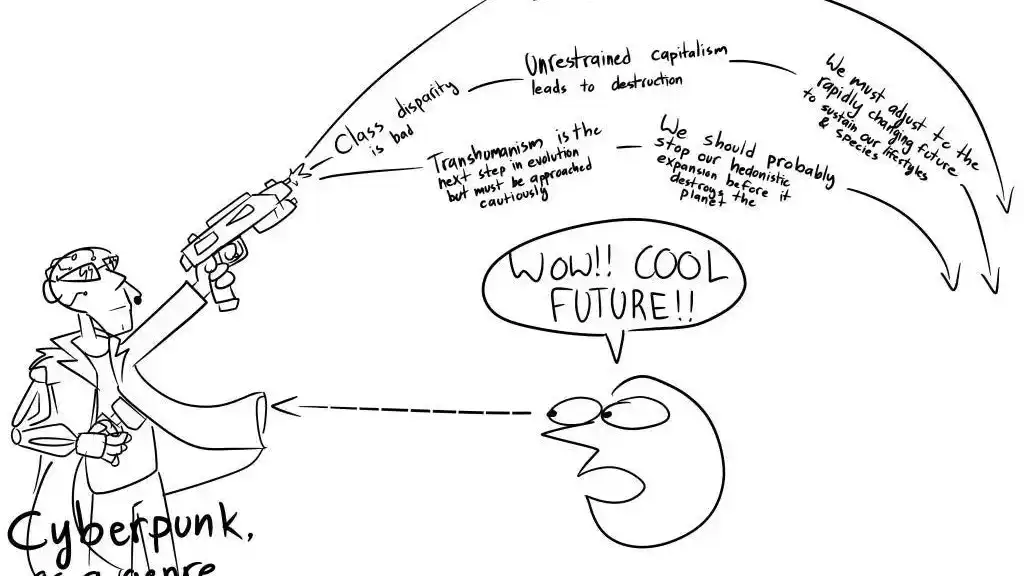 Class disparity
is bad
Unrestrained capitalism
leads to destruction
We must adjust to the
rapidly changing future
to sustain our lifestyles
& species
Transhumanism is the
next step in evolution
but must be approached
cautiously
We should probably
stop our hedonistic
expansion before it
destroys the
planet
WOW!! COOL
FUTURE!!
Cyberpunk,
as a genre